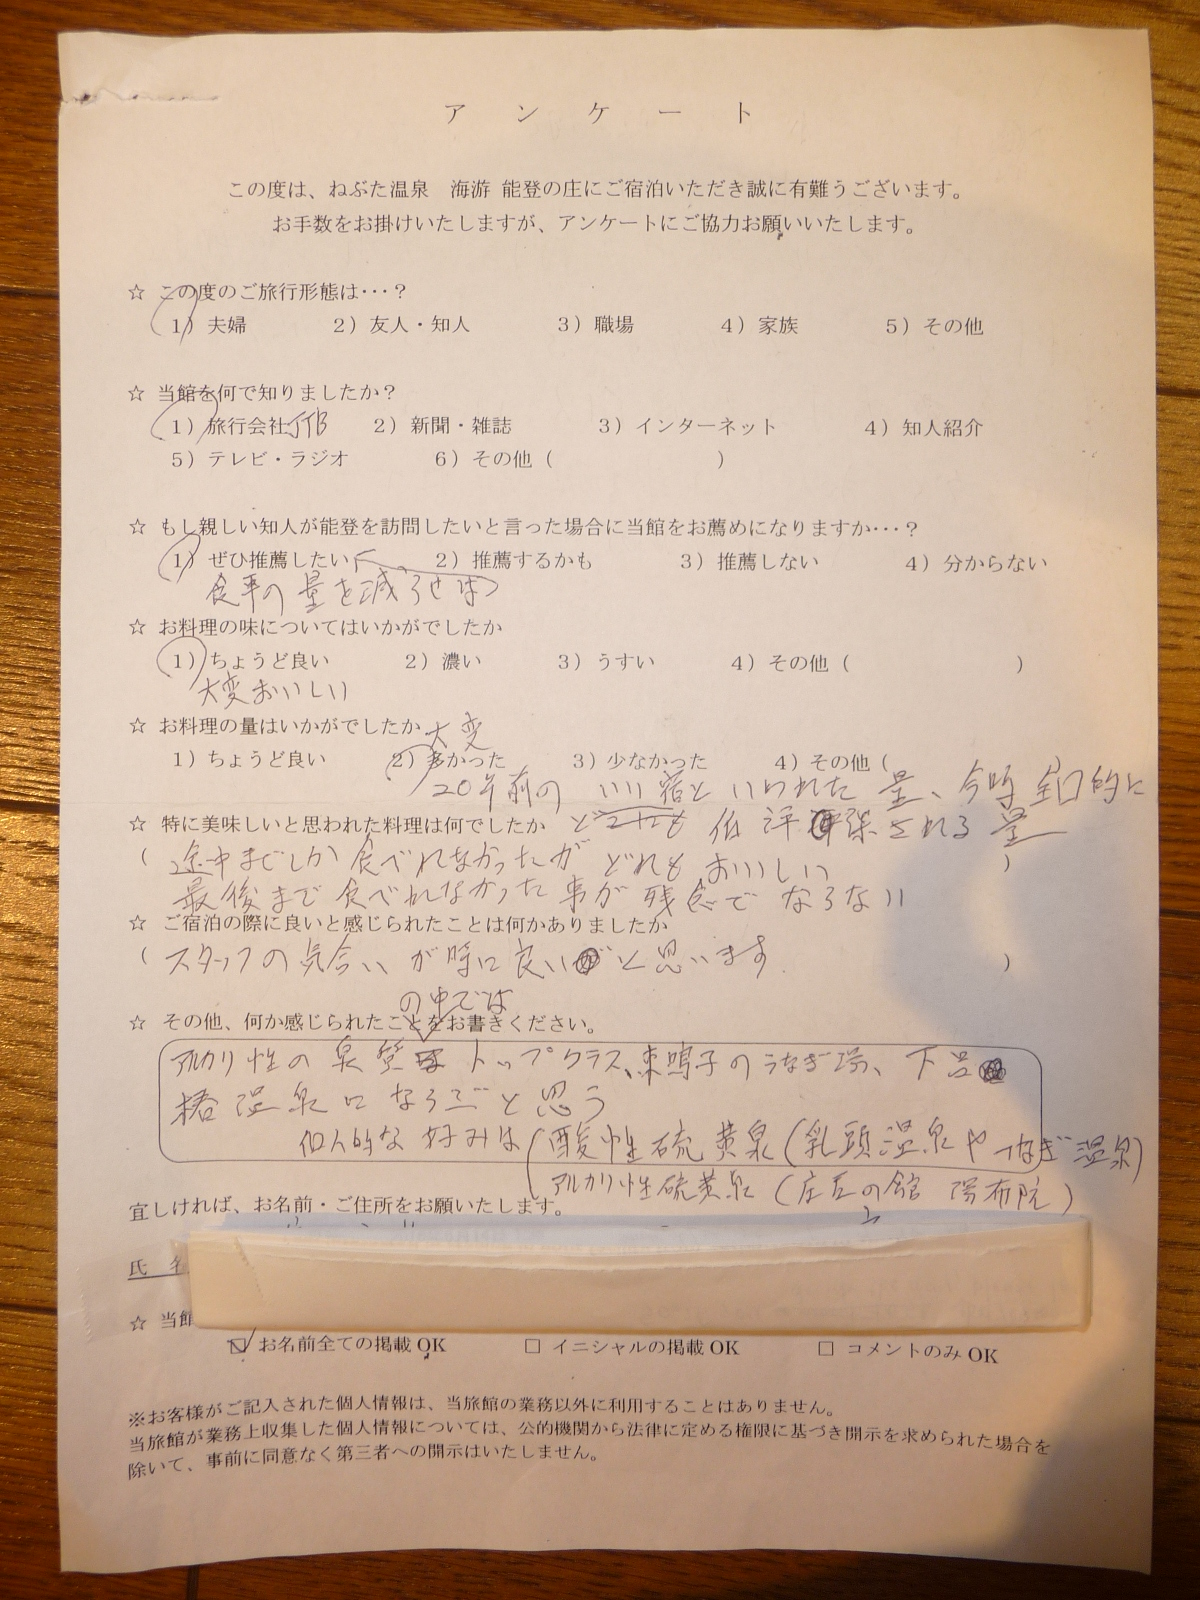 アンケート
この度は、ねぶた温泉 海游 能登の庄にご宿泊いただき誠に有難うございます。
お手数をお掛けいたしますが、アンケートにご協力お願いいたします。
☆ この度のご旅行形態は・・・?
1) 夫婦 2) 友人・知人 3) 職場 4) 家族 5) その他
☆ 当館を何で知りましたか?
1) 旅行会社 JTB 2) 新聞・雑誌 3) インターネット 4) 知人紹介
5) テレビ・ラジオ 6) その他 ( )
☆ もし親しい知人が能登を訪問したいと言った場合に当館をお薦めになりますか・・・?
1) ぜひ推薦したい 2) 推薦するかも 3) 推薦しない 4) 分からない
食事の量を減らせば
☆ お料理の味についてはいかがでしたか
1) ちょうど良い 2) 濃い 3) うすい 4) その他 ( )
大変おいしい
☆ お料理の量はいかがでしたか
大変
1) ちょうど良い 2) 多かった 3) 少なかった 4) その他 (
20年前の いい宿と いわれた 量、今時 全国的に
☆ 特に美味しいと思われた料理は何でしたか
される 量
( 途中までしか 食べれなかったが どれも おいしい )
最後まで 食べれなかった 事が 残念で ならない
☆ ご宿泊の際に良いと感じられたことは何かありましたか
( スタッフの気合い が 特に良い と思います )
の中では
☆ その他、何か感じられたことをお書きください。
アルカリ性の 泉質 トップクラス、東鳴子のうなぎ湯、下呂
椿温泉に ならぶと思う
個人的な 好みは 酸性硫黄泉 (乳頭温泉や つなぎ温泉)
アルカリ性硫黄泉 (庄屋の館 湯布院)
宜しければ、お名前・ご住所をお願いします。
氏 名
☆ 当館
お名前全ての掲載 OK □ イニシャルの掲載 OK □ コメントのみ OK
※お客様がご記入された個人情報は、当旅館の業務以外に利用することはありません。
当旅館が業務上収集した個人情報については、公的機関から法律に定める権限に基づき開示を求められた場合を
除いて、事前に同意なく第三者への開示はいたしません。